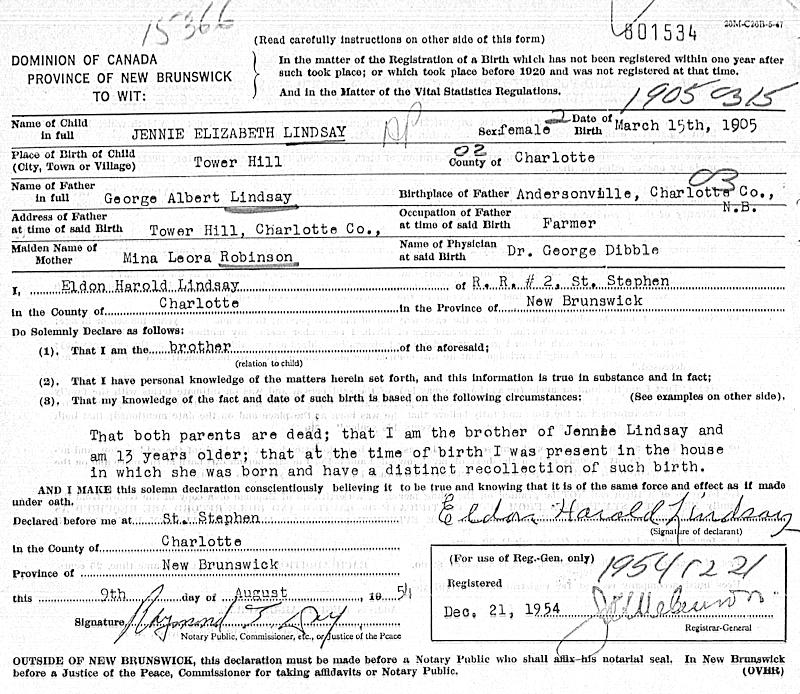 15366
(Read carefully instructions on other side of this form)
801534
20M-C26B-5-47
DOMINION OF CANADA
PROVINCE OF NEW BRUNSWICK
TO WIT:
In the matter of the Registration of a Birth which has not been registered within one year after
such took place; or which took place before 1920 and was not registered at that time.
And in the Matter of the Vital Statistics Regulations.
1905 03 15
Name of Child in full JENNIE ELIZABETH LINDSAY Sex female 2 Date of Birth March 15th, 1905
Place of Birth of Child (City, Town or Village) Tower Hill 02 County of Charlotte
03
Name of Father in full George Albert Lindsay Birthplace of Father Andersonville, Charlotte Co., N.B.
Address of Father at time of said Birth Tower Hill, Charlotte Co., Occupation of Father at time of said Birth Farmer
Maiden Name of Mother Mina Leora Robinson Name of Physician at said Birth Dr. George Dibble
I, Eldon Harold Lindsay of R. R. # 2, St. Stephen
in the County of Charlotte in the Province of New Brunswick
Do Solemnly Declare as follows:
(1). That I am the brother of the aforesaid;
(relation to child)
(2). That I have personal knowledge of the matters herein set forth, and this information is true in substance and in fact;
(3). That my knowledge of the fact and date of such birth is based on the following circumstances: (See examples on other side).
That both parents are dead; that I am the brother of Jennie Lindsay and
am 13 years older; that at the time of birth I was present in the house
in which she was born and have a distinct recollection of such birth.
AND I MAKE this solemn declaration conscientiously believing it to be true and knowing that it is of the same force and effect as if made
under oath.
Declared before me at St. Stephen
Eldon Harold Lindsay
(Signature of declarant)
in the County of Charlotte
Province of New Brunswick
this 9th day of August, 1954
Signature Raymond
Notary Public, Commissioner, etc., or Justice of the Peace
(For use of Reg.-Gen. only)
1954 12 21
Registered
Dec. 21, 1954
Registrar-General
OUTSIDE OF NEW BRUNSWICK, this declaration must be made before a Notary Public who shall affix his notarial seal. In New Brunswick
before a Justice of the Peace, Commissioner for taking affidavits or Notary Public. (OVER)